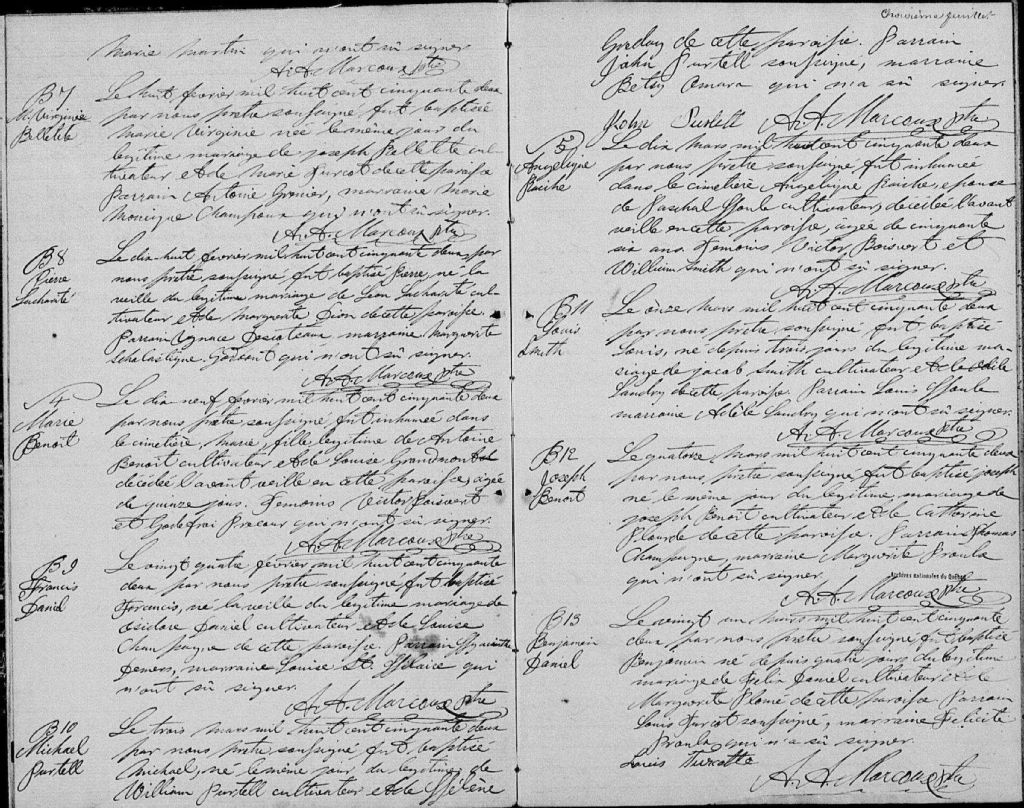 Marie Martin qui n'ont sû signer
A. A. Marcoux Ptre
B 7
M. Virginie
Bellelite
Le huit, fevrier mil huit cent cinquante deux
par nous prêtre soussigné fut baptisée
Marie Virginie née le même jour du
legitime mariage de Joseph cul-
tivateur et de Marie Turcot de cette paroisse
Parrain Antoine Grenier, marraine Marie
Monique Champoux qui n'ont sû signer.
A. A. Marcoux Ptre
B 8
Pierre
Lacharité
Le dix huit fevrier mil huit cent cinquante deux par
nous prêtre soussigné fut baptisé Pierre, né la
veille du legitime mariage de Léon Lacharité cul-
tivateur et de Marguerite Dion de cette paroisse.
Parrain Ignace marraine Marguerite
Scholastique qui n'ont sû signer.
A. A. Marcoux Ptre
S 4
Marie
Benoit
Le dix neuf fevrier mil huit cent cinquante deux
par nous prêtre soussigné fut inhumée dans
le cimetière, Marie, fille legitime de Antoine
Benoit cultivateur et de Louise Grandmont
decedée l'avant veille en cette paroisse, agée
de quinze jours. Temoins Victor Boisvert
et Godefroi qui n'ont sû signer.
A. A. Marcoux Ptre
B 9
Francis
Daniel
Le vingt quatre fevrier mil huit cent cinquante
deux par nous prêtre soussigné fut baptisé
Francis, né la veille du legitime mariage de
Isidore Daniel cultivateur et de Louise
Champagne de cette paroisse. Parrain Hyacinthe
marraine Louise St. Hilaire qui
n'ont sû signer.
A. A. Marcoux Ptre
B 10
Michael
Purtell
Le trois mars mil huit cent cinquante deux
par nous prêtre soussigné fut baptisé
Michael, né le même jour du legitime de
William Purtell cultivateur et de Hélène
Troisième feuillet
de cette paroisse. Parrain
John Purtell soussigné, marraine
Betsy Omara qui n'a sû signer.
John Purtell A. A. Marcoux Ptre
S 5
Angelique
Laiche
Le dix mars mil huit cent cinquante deux
par nous prêtre soussigné fut inhumée
dans le cimetière Angelique Laiche, epouse
de Paschal Houle cultivateur, decedée l'avant
veille en cette paroisse, agée de cinquante
six ans. Temoins Victor Boisvert et
William Smith qui n'ont sû signer.
A. A. Marcoux Ptre
B 11
Louis
Smith
Le onze mars mil huit cent cinquante deux
par nous prêtre soussigné fut baptisé
Louis, né depuis trois jours du legitime ma-
riage de Jacob Smith cultivateur et de Odile
Landry de cette paroisse. Parrain Louis Houle
marraine Adèle Landry qui n'ont sû signer.
A. A. Marcoux Ptre
B 12
Joseph
Benoit
Le quatorze mars mil huit cent cinquante deux
par nous prêtre soussigné fut baptisé Joseph
né le même jour du legitime mariage de
Joseph Benoit cultivateur et de Catherine
Plourde de cette paroisse. Parrain Thomas
Champagne, marraine Marguerite Proulx
qui n'ont sû signer.
Archives nationales du Québec
A. A. Marcoux Ptre
B 13
Benjamin
Daniel
Le vingt un mars mil huit cent cinquante
deux par nous prêtre soussigné fut baptisé
Benjamin né depuis quatre jours du legitime
mariage de Felix Daniel cultivateur et de
Marguerite de cette paroisse Parrain
Louis Turcot soussigné, marraine Felicité
Proulx qui n'a sû signer.
Louis Turcotte
A. A. Marcoux Ptre